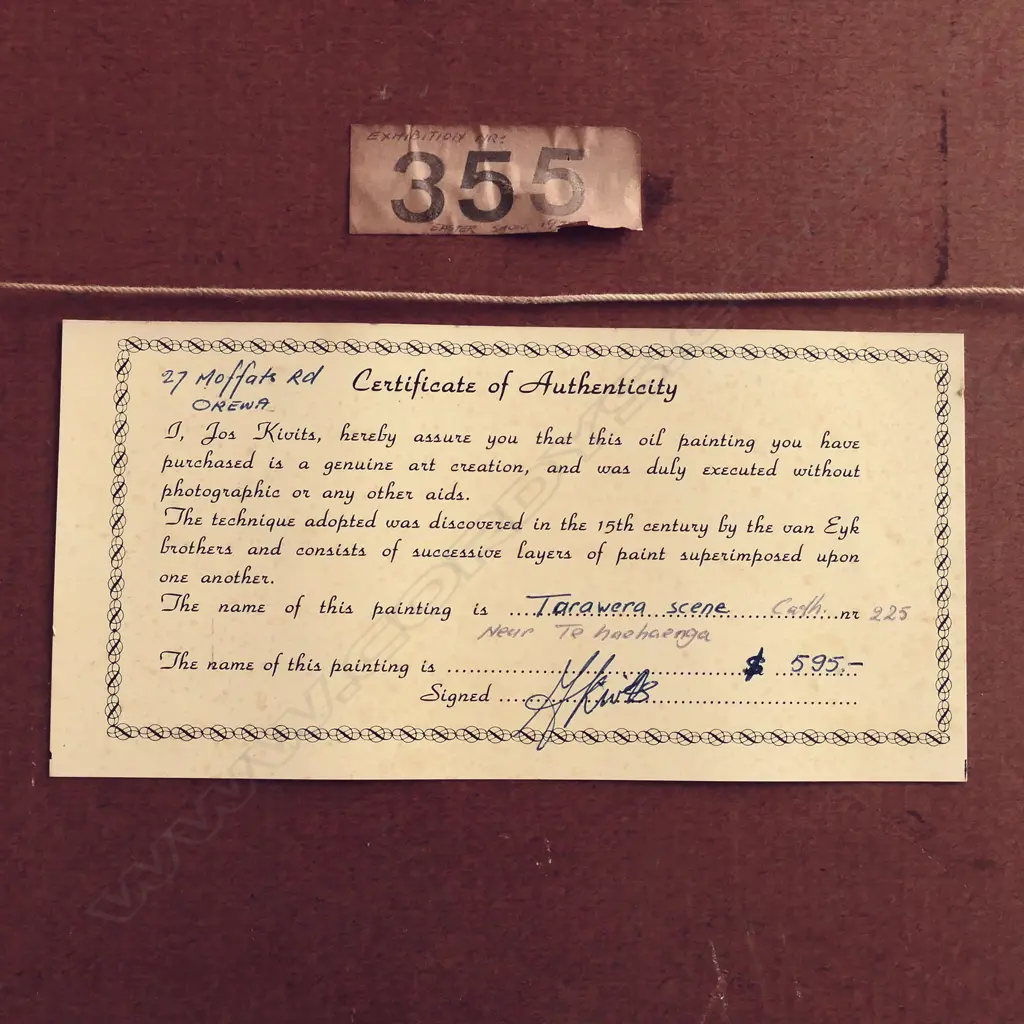 EXHIBITION NR:
355
EASTER SHOW
27 Moffats Rd
OREWA
Certificate of Authenticity
I, Jos Kivits, hereby assure you that this oil painting you have
purchased is a genuine art creation, and was duly executed without
photographic or any other aids.
The technique adopted was discovered in the 15th century by the van Eyk
brothers and consists of successive layers of paint superimposed upon
one another.
The name of this painting is ...Tarawera scene ...nr 225
Near Te
The name of this painting is ... $ 595.-
Signed ... Kivits